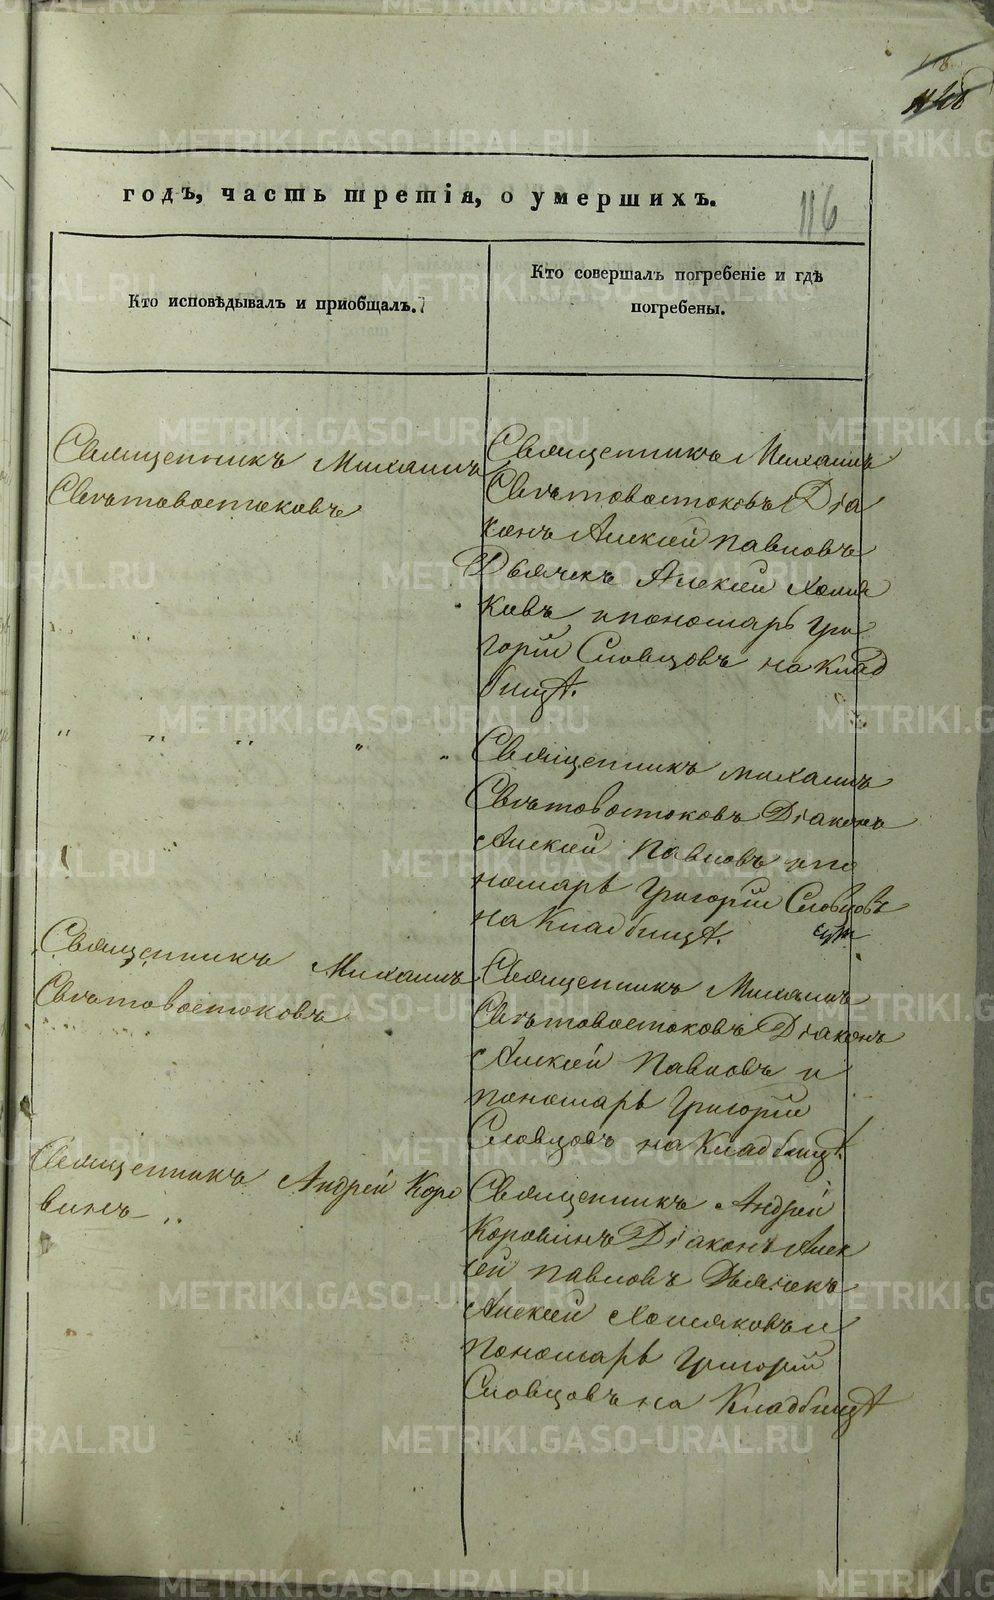 116
годъ, часть третія, о умершихъ.
Кто исповѣдывалъ и приобщалъ.
Кто совершалъ погребеніе и гдѣ
погребены.
Священникъ Михаилъ
Свѣтовостоковъ
Священникъ Михаилъ
Свѣтовостоковъ Діа
конъ Алексѣй Павловъ
Дьячекъ Алексѣй Холмя
ковъ и пономарь Гри
горій Словцовъ на клад
бищѣ.
" " " " "
Священникъ Михаилъ
Свѣтовостоковъ Діаконъ
Алексѣй Павловъ и по
номарь Григорій Словцовъ
на Кладбищѣ.
Священникъ Михаилъ
Свѣтовостоковъ
Священникъ Михаилъ
Свѣтовостоковъ Діаконъ
Алексѣй Павловъ и
пономарь Григорій
Словцовъ на Кладбищѣ.
Священникъ Андрей Коро
винъ "
Священникъ Андрей
Коровинъ Діаконъ Алек
сѣй Павловъ Дьячекъ
Алексѣй Холмяковъ и
пономарь Григорій
Словцовъ на Кладбищѣ
METRIKI.GASO-URAL.RU